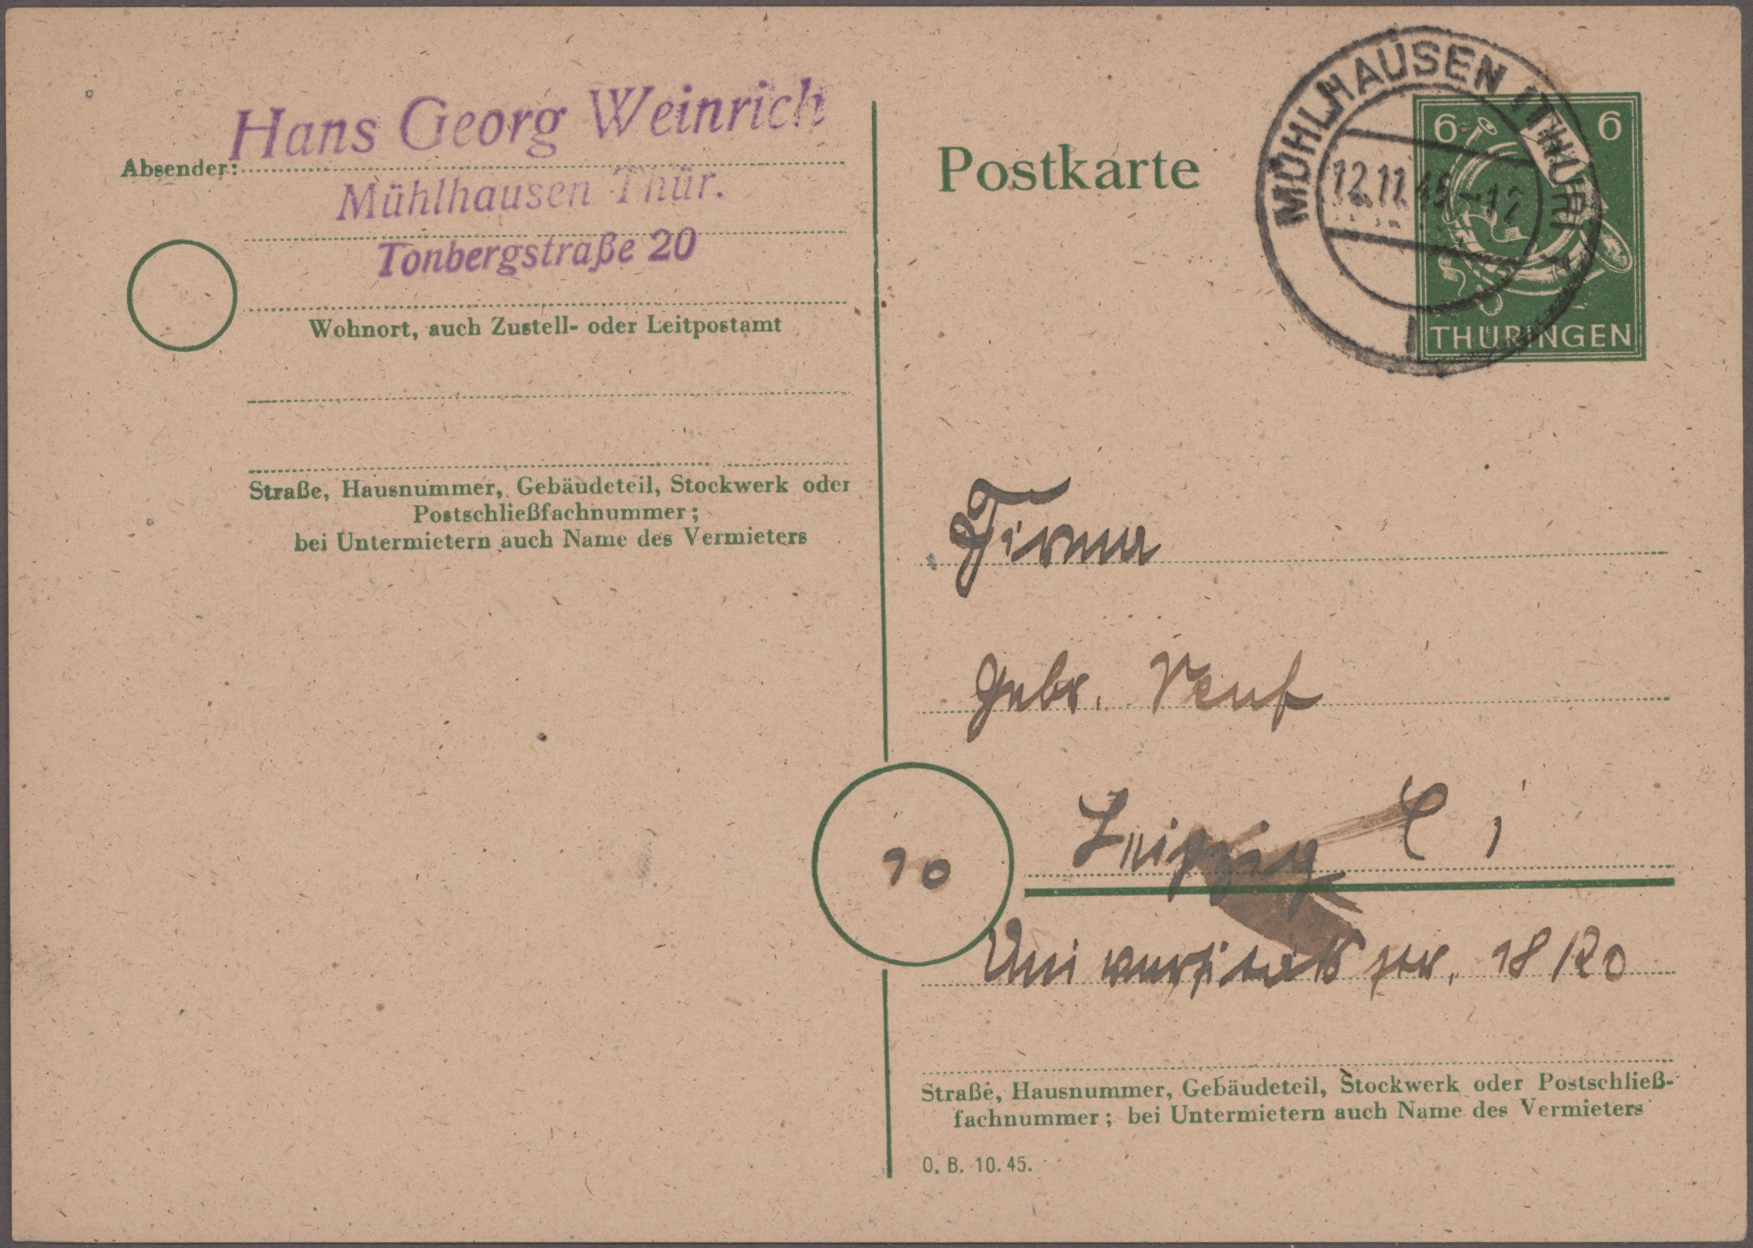 Hans Georg Weinrich
Absender:
Mühlhausen Thür.
Tonbergstraße 20
Wohnort, auch Zustell- oder Leitpostamt
Straße, Hausnummer, Gebäudeteil, Stockwerk oder
Postschließfachnummer;
bei Untermietern auch Name des Vermieters
Postkarte
MÜHLHAUSEN (THÜR)
12.11.45.-12
6 6
THÜRINGEN
Firma
Gebr. Senf
10
Leipzig C 1
Universitätsstr. 18/20
Straße, Hausnummer, Gebäudeteil, Stockwerk oder Postschließ-
fachnummer; bei Untermietern auch Name des Vermieters
O. B. 10. 45.